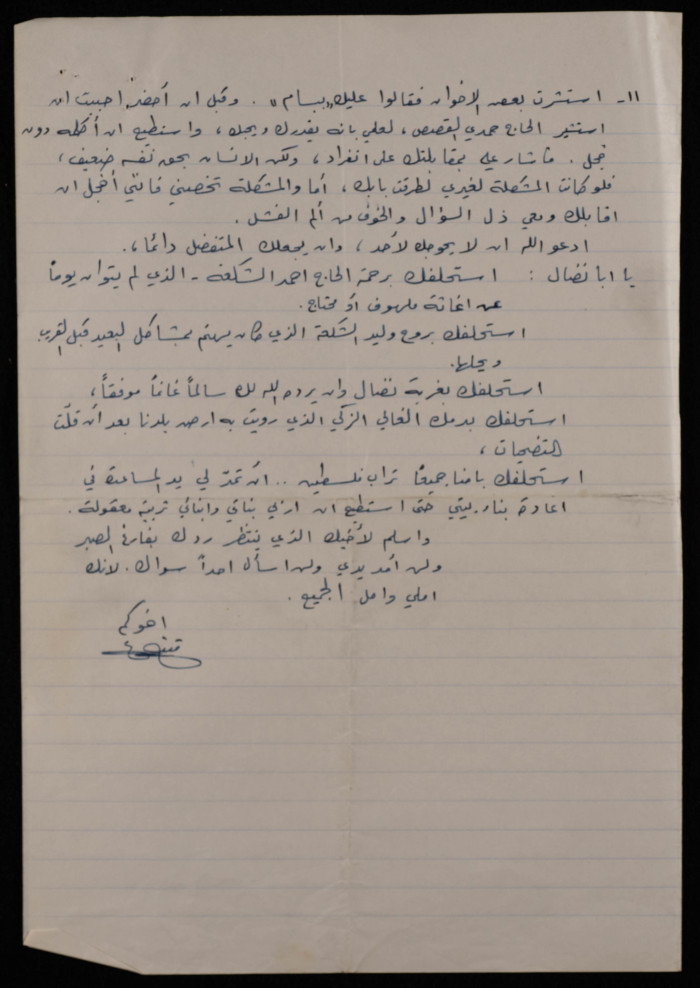 ١١- استشرت بعض الاخوان فقالوا عليك "ببسام". وقبل ان أحضر، احببت ان
استشير الحاج حمدي القصص، لعلمي بانه يقدرك ويجلك، واستطيع ان أكلمه دون
خجل. فأشار علي بمقابلتك على انفراد، ولكن الانسان بحق نفسه ضعيف،
فلو كانت المشكلة لغيري لطرقت بابك، أما والمشكلة تخصني فانني أخجل ان
اقابلك ومعي ذل السؤال والخوف من ألم الفشل.
ادعو الله ان لا يحوجك لأحد، وان يجعلك المتفضل دائماً،
يا ابا نضال: استحلفك برحمة الحاج احمد الشكعة - الذي لم يتوان يوماً
عن اغاثة ملهوف أو محتاج.
استحلفك بروح وليد الشكعة الذي كان يهتم بمشاكل البعيد قبل القريب
ويحلها.
استحلفك بغربة نضال وان يرده الله لك سالماً غانماً موفقاً،
استحلفك بدمك الغالي الزكي الذي رويت به ارض بلدنا بعد أن قلّت
التضحيات،
استحلفك بامنا جميعاً تراب فلسطين .. أن تمدّ لي يد المساعدة في
اعادة بناء بيتي حتى استطيع ان اربي بناتي وابنائي تربية معقولة.
واسلم لأخيك الذي ينتظر ردك بفارغ الصبر
ولن أمد يدي ولن اسأل احداً سواك. لانك
املي وامل الجميع.
اخوكم